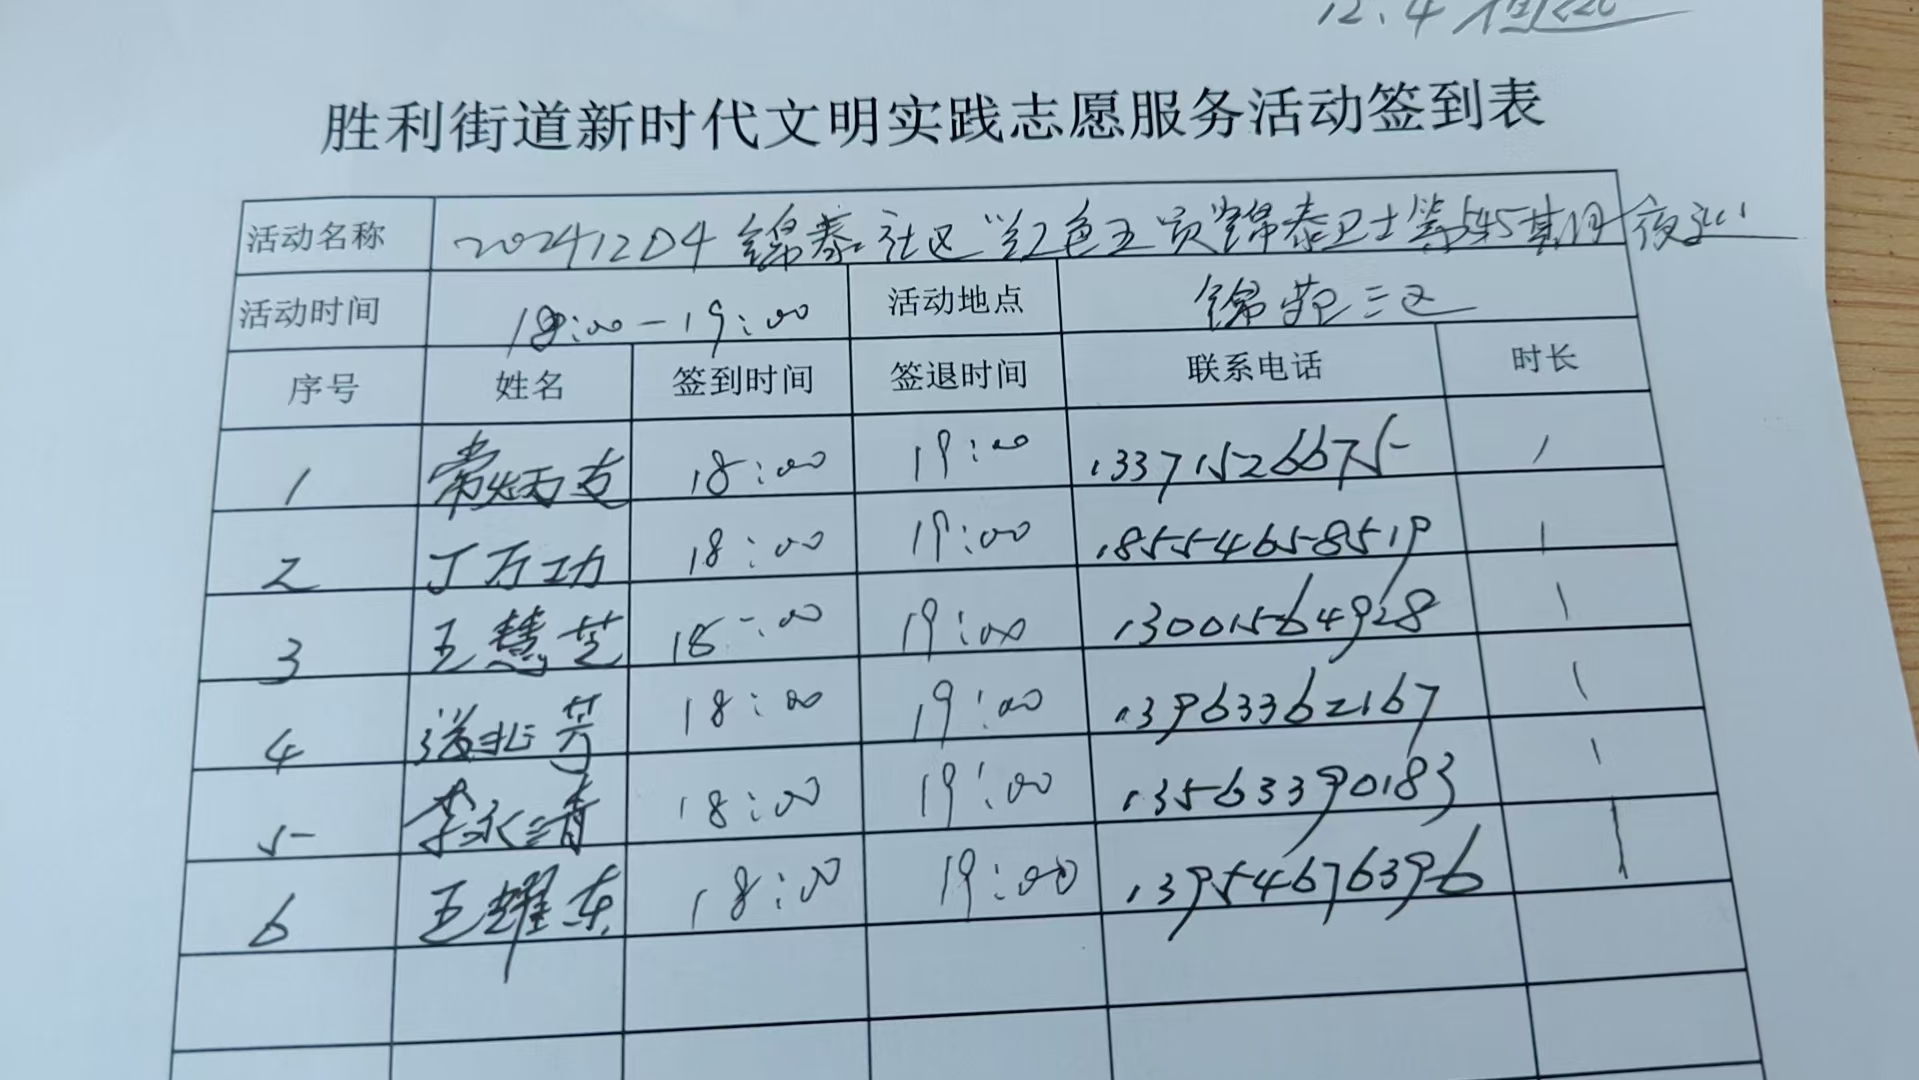 12.4
胜利街道新时代文明实践志愿服务活动签到表
活动名称 20241204 锦泰社区"红色五员"锦泰卫士第545期
活动时间 18:00-19:00 活动地点 锦苑三区
序号 姓名 签到时间 签退时间 联系电话 时长
1 常炳志 18:00 19:00 13371526675 1
2 丁万功 18:00 19:00 18554658519 1
3 王慧芝 18:00 19:00 13001564928 1
4 兆芳 18:00 19:00 13963362167 1
5 李永清 18:00 19:00 13563390183 1
6 王耀东 18:00 19:00 13954676396 1